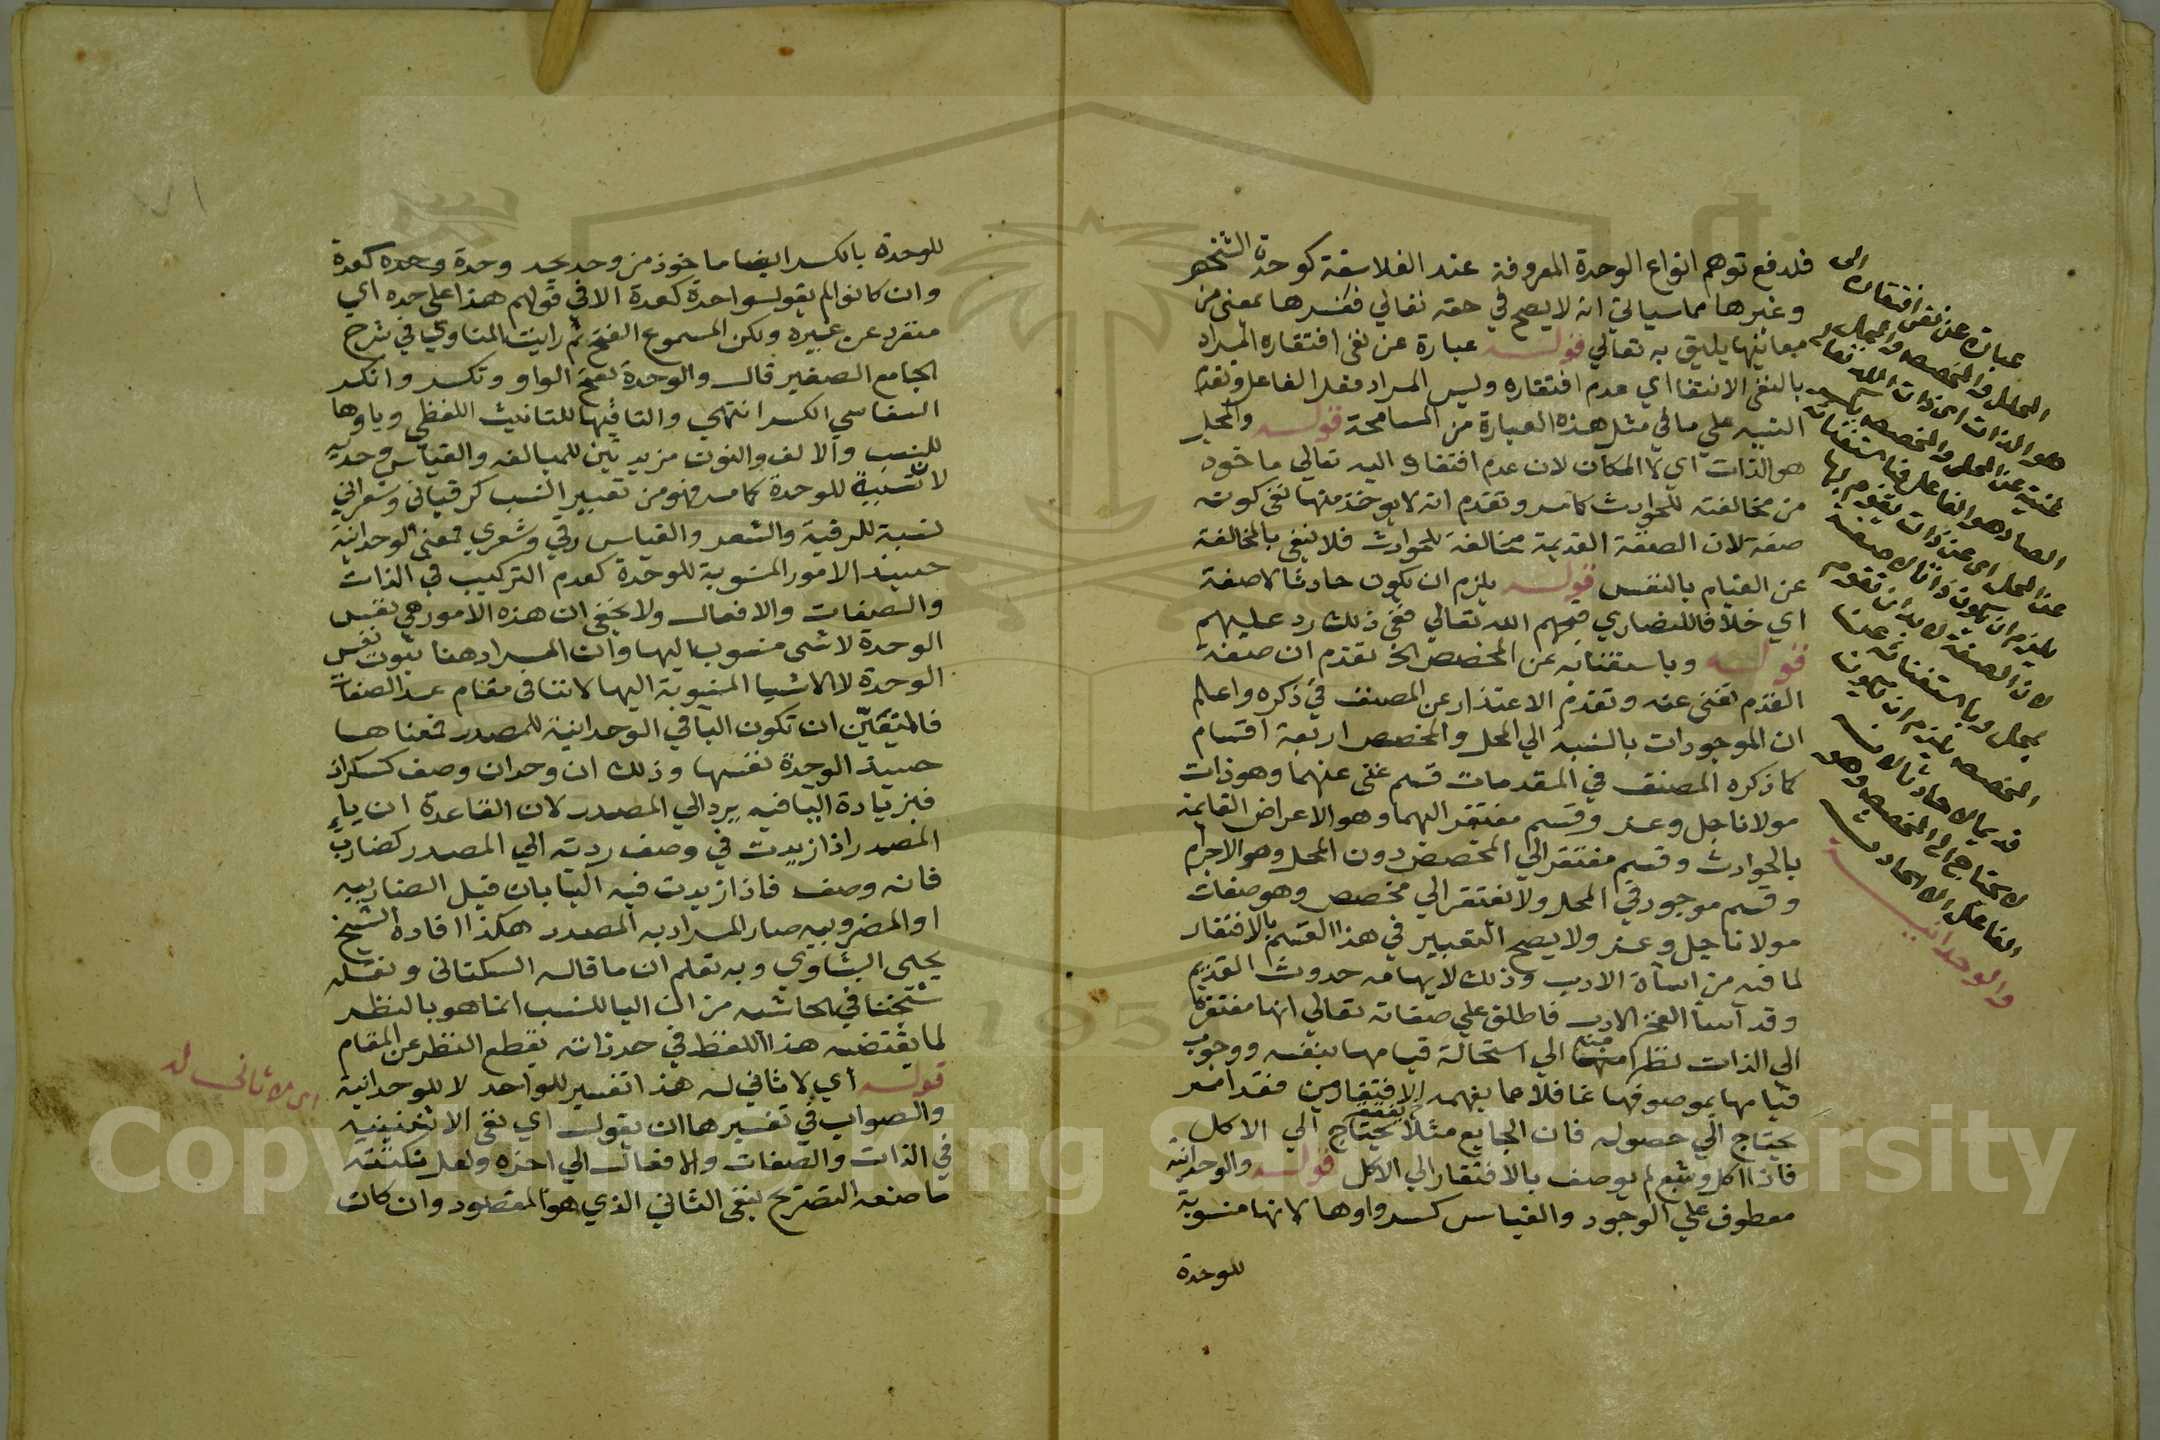 فلدفع توهم انواع الوحدة المعروفة عند الفلاسفة كوحدة الشخص
وغيرها مما سياتي انه لا يصح في حقه تعالي ففسرها بمعني من
معانيها يليق به تعالي قوله عبارة عن نفي افتقاره المراد
بالنفي الانتفا اي عدم افتقاره وليس المراد فعل الفاعل وتقدم
التنبيه علي ما في مثل هذه العبارة من المسامحة قوله والمحل
هو الذات اي لا المكان لان عدم افتقاره اليه تعالي ماخوذ
من مخالفته للحوادث كما مر وتقدم انه لا يوخذ منها نفي كونه
صفة لان الصفة القديمة مخالفة للحوادث فلا نفي بالمخالفة
عن القيام بالنفس قوله يلزم ان يكون حادثا لا صفة
اي خلافا للنصاري قبحهم الله تعالي ففي ذلك رد عليهم
قوله وباستغنائه عن المخصص الخ تقدم ان صفة
القدم تغني عنه وتقدم الاعتذار عن المصنف في ذكره واعلم
ان الموجودات بالنسبة الي المحل والمخصص اربعة اقسام
كما ذكره المصنف في المقدمات قسم غني عنهما وهو ذات
مولانا جل وعز وقسم مفتقر اليهما وهو الاعراض القايمة
بالحوادث وقسم مفتقر الي المخصص دون المحل وهو الاجرام
وقسم موجود في المحل ولا يفتقر الي مخصص وهو صفات
مولانا جل وعز ولا يصح التعبير في هذا القسم بالافتقار
لما فيه من اساة الادب وذلك لايهامه حدوث القديم
وقد اسا الفخر الادب فاطلق علي صفاته تعالي انها مفتقرة
الي الذات نظرا منه الي استحالة قيامها بنفسه ووجوب
قيامها بموصوفها غافلا عما يفهمه الافتقار من فقد امر
يحتاج الي حصوله فان الجايع مثلا يحتاج الي الاكل
فاذا اكل وشبع لم يوصف بالافتقار الي الاكل قوله والوحدانية
معطوف علي الوجود والقياس كسر واوها لانها منسوبة
للوحدة
عبارة عن نفي افتقاره الى
المحل والمخصص والمحل
هو الذات اي ذات الله تعالى
غنية عن المحل والمخصص بكسر
الصاد هو الفاعل فباستغنائه
عن المحل اي عن ذات يقوم بها
يلزم ان يكون ذاتا لا صفة
لان الصفة لا بد ان تقوم
بمحل وباستغنائه عن
المخصص يلزم ان يكون
قديما لا حادثا لان
لا يحتاج الى المخصص وهو
الفاعل الا الحادث
والوحدانية
للوحدة بالكسر ايضا ماخوذ من وحد يحد وحدة وحده كعدة
وان كانوا لم يقولوا حدة كعدة الا في قولهم هذا علي حده اي
منفرد عن غيره ولكن المسموع الفتح ثم رايت المناوي في شرح
الجامع الصغير قال والوحدة بفتح الواو وتكسر وانكر
السفاسي الكسر انتهي والتا فيها للتانيث اللفظي وياوها
للنسب والالف والنون مزيدتين للمبالغة والقياس وحدية
لا نسبة للوحدة كما مر فهو من تغيير النسب كرقباني وشعراني
نسبة للرقبة والشعر والقياس رقبي وشعري فمعني الوحدانية
حينئذ الامور المنسوبة للوحدة كعدم التركيب في الذات
والصفات والافعال ولا يخفي ان هذه الامور هي نفس
الوحدة لا شي منسوب اليها وان المراد هنا ثبوت نفس
الوحدة لا الاشيا المنسوبة اليها لاننا في مقام عد الصفات
فالمتعين ان تكون اليا في الوحدانية للمصدر فمعناها
حينئذ الوحدة نفسها وذلك ان وحدان وصف كسكران
فبزيادة اليا فيه يرد الي المصدر لان القاعدة ان ياء
المصدر اذا زيدت في وصف ردته الي المصدر كضارب
فانه وصف فاذا زيدت فيه اليا بان قيل الضاربيه
او المضروبيه صار المراد به المصدر هكذا افاده الشيخ
يحيي الشاوي وبه تعلم ان ما قاله السكتاني ونقله
شيخنا في الحاشيه من ان اليا للنسب انما هو بالنظر
لما يقتضيه هذا اللفظ في حد ذاته بقطع النظر عن المقام
قوله اي لا ثاني له هذا تفسير للواحد لا للوحدانية
والصواب في تفسيرها ان يقول اي نفي الاثنينية
في الذات والصفات والافعال الي اخره ولعل نكتته
ما صنعه التصريح بنفي الثاني الذي هو المقصود وان كان
اي لا ثاني له
Copyright © King Saud University
1957